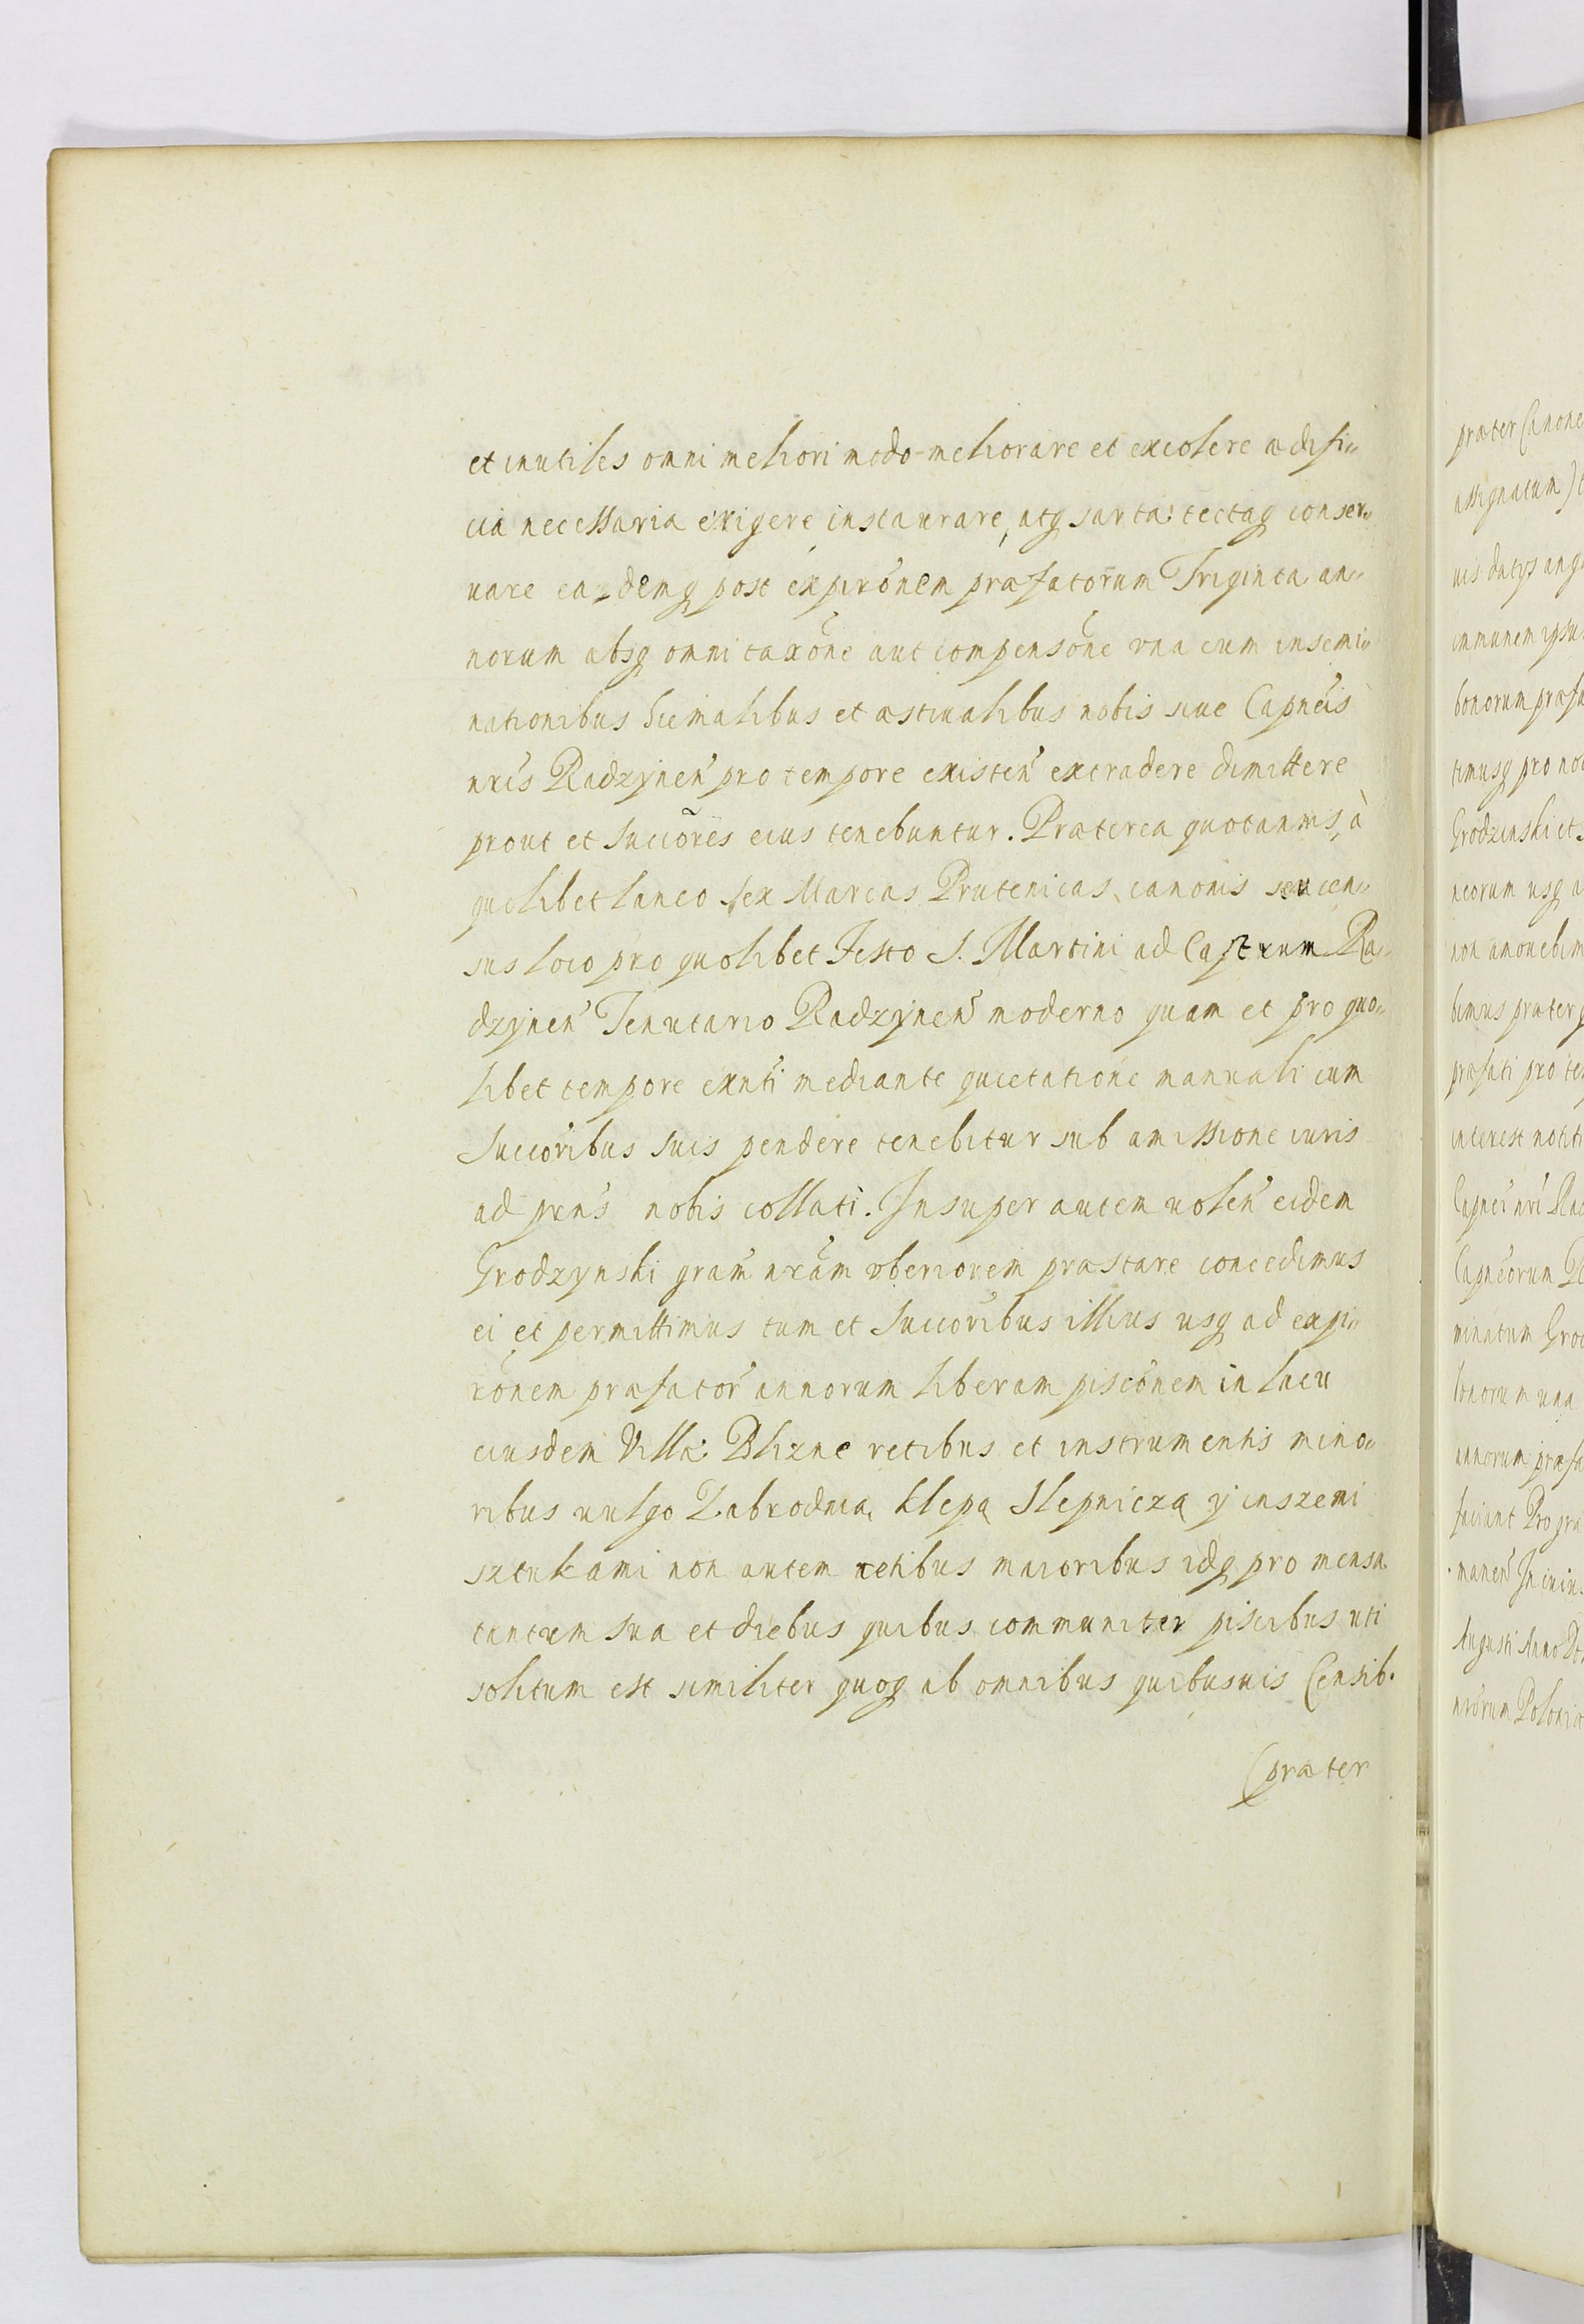 et inutiles omni meliori modo meliorare et excolere ædifi„
cia necessaria erigere instaurare, atq sarta tectaq conser„
uare eademq post expirõnem præfatorum Triginta an„
norum absq omni taxõne aut compensõne vna cum insemi„
nationibus hiemalibus et æstiualibus nobis siue Capneis
nris Radzynen pro tempore existen extradere dimittere
prout et Succõres eius tenebuntur. Præterea quotannis, à
quolibet laneo sex Marcas Prutenicas canonis seu cen„
sus loco pro quolibet Festo S. Martini ad Castrum Ra„
dzynen Tenutario Radzynen moderno quam et pro quo„
libet tempore exnti mediante quietatione manuali cum
Succoribus suis pendere tenebitur sub amissione iuris
ad præns nobis collati. Insuper autem uolen eidem
Grodzynski gram nram vberiorem præstare concedimus
ei et permittimus tum et Succoribus illius usq ad expi„
rõnem præfator annorum liberam piscõnem in lacu
eiusdem Villæ Blizne retibus et instrumentis mino„
ribus uulgo Zabrodnia, klepą Slepniczą y inszemi
sztukami non autem retibus maioribus idq pro mensa
tantum sua et diebus quibus communiter piscibus uti
solitum est similiter quoq ab omnibus quibusuis Censib.
(præter
præter Canone
assignatum)
uis datys ang
immunem ipsu
bonorum præfa
timusq pro no
Grodzinski et
neorum usq a
non amouebim
bimus præter
præfati pro te
interest notiti
Capnei nri Rad
Capneorum
minatum Gro
bonorum una
annorum præfa
faciant Pro
manen In cuius
Augusti Anno Do
nrorum Poloniæ